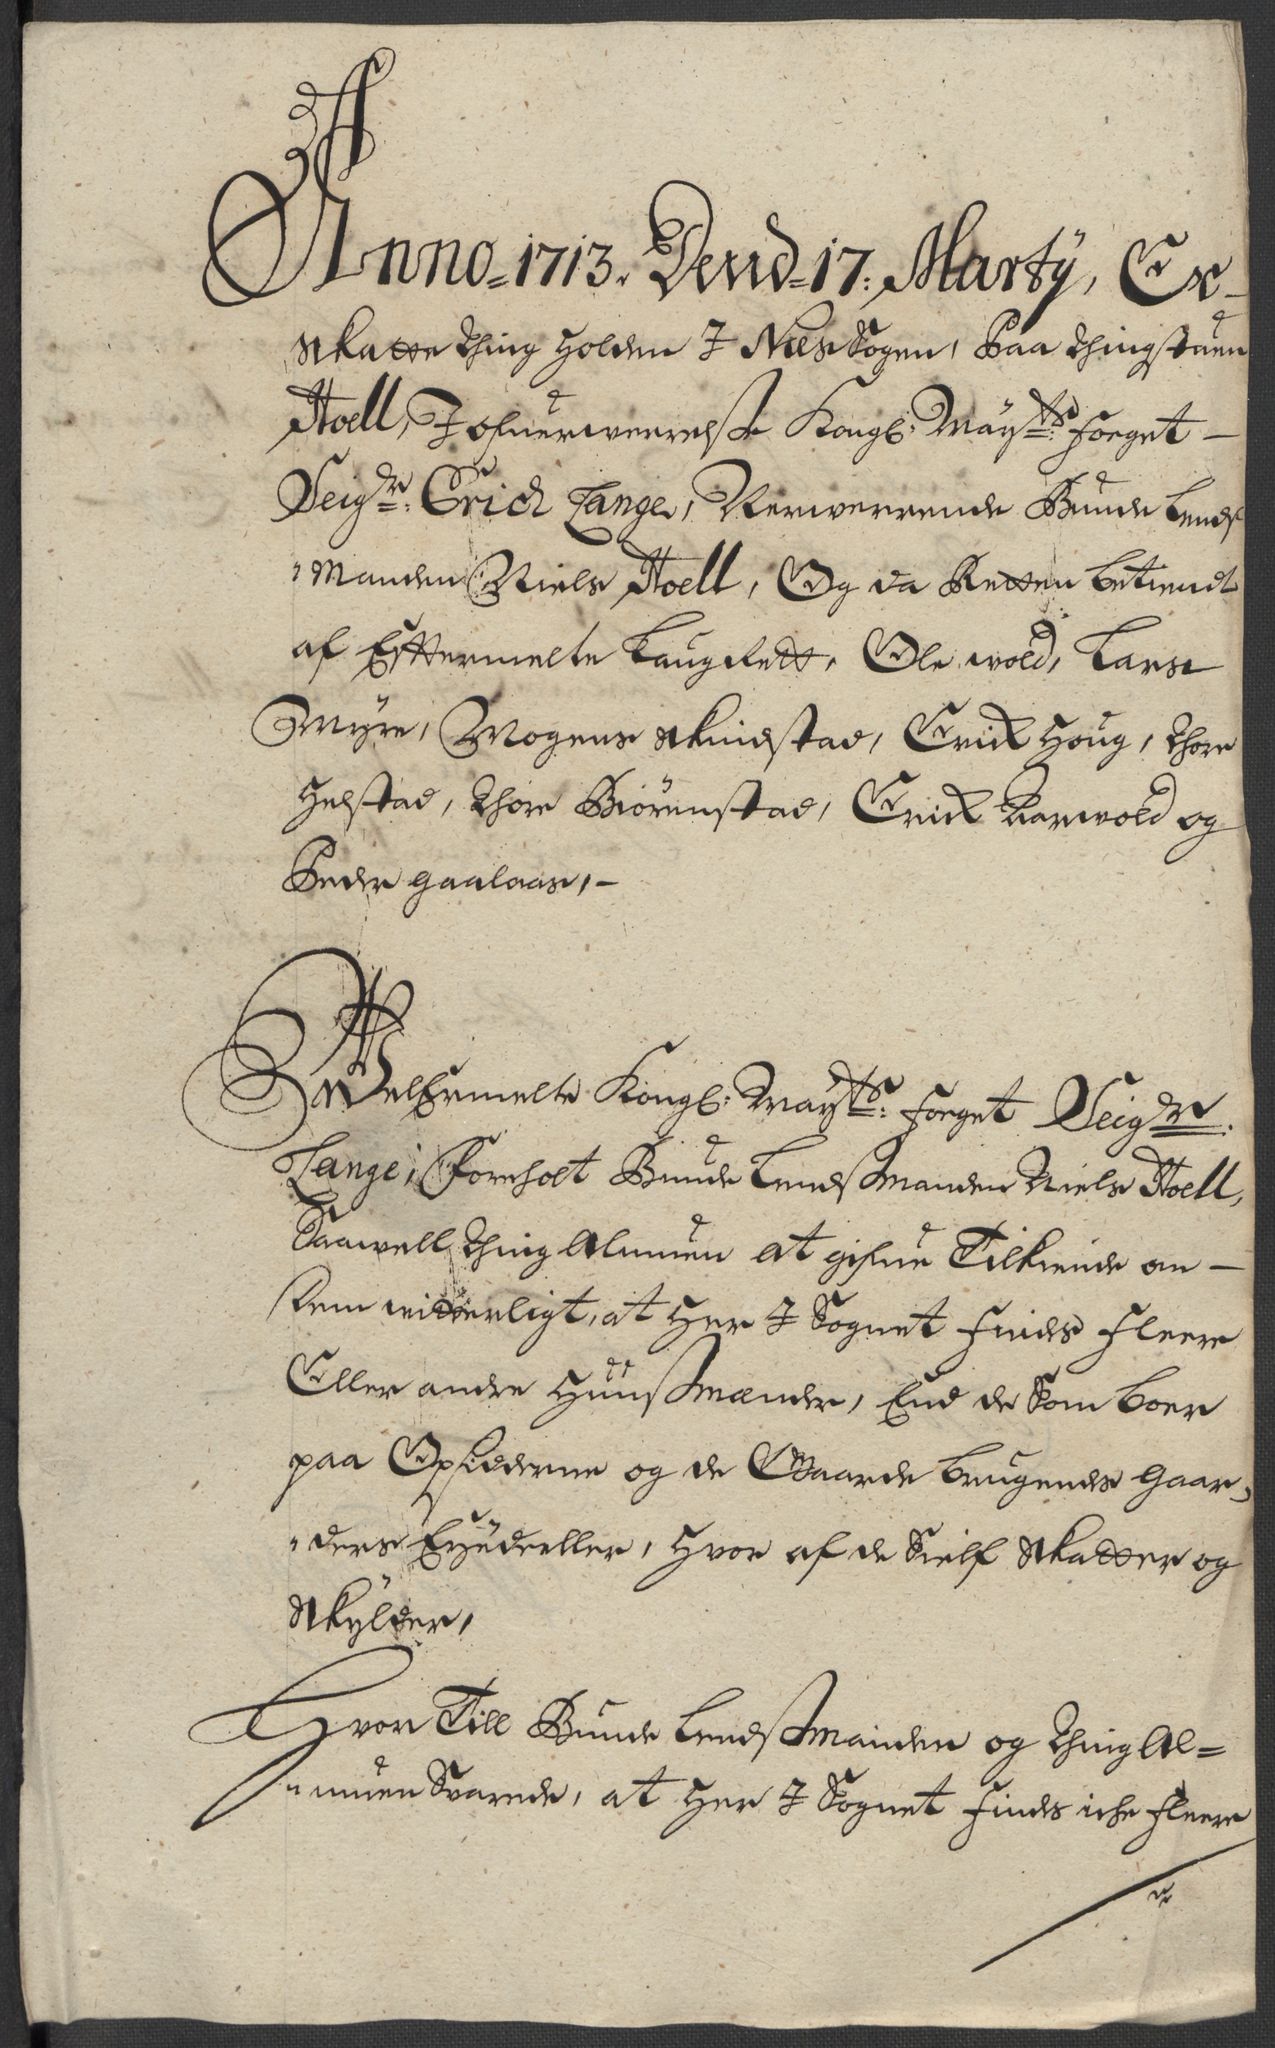 Anno 1713. Dend 17: Marty, Er
skatte Thing Holden I Næs Sogen, Paa Thingstuen
Stoell, I ofuerwerrelse Kongl: Mayts: Foeget
Seigr: Erich Lange, Nerwerrende Bunde Lends
Manden Niels Stoell, Og da Retten betiendt
af Efftermelte Laugrett, Ole wold, Lars
Myre, Mogens Skindstad, Erich Houg, Thore
Helstad, Thore Biörenstad, Erich Karwold og
Peder Gaalaas,
Welbermelte Kongl: Mayts: Foeget Seigr.
Lange, Foreholt Bunde Lendsmanden Niels Stoell,
Saawell Thing Almuen at gifue Tilkiende om
dem witterligt, at Her I Sognet Findes Fleere
Eller andre Huusmænder, End de Som boer
paa Ofsidderne og de Gaarde brugendes Gaar,
ders Eyedeeller, Hvor af de Sielf Skatter og
Skylder,
Hvor Till Bunde Lendsmanden og Thing Al=
muen Svarede, at Her I Sognet Findes iche Fleere